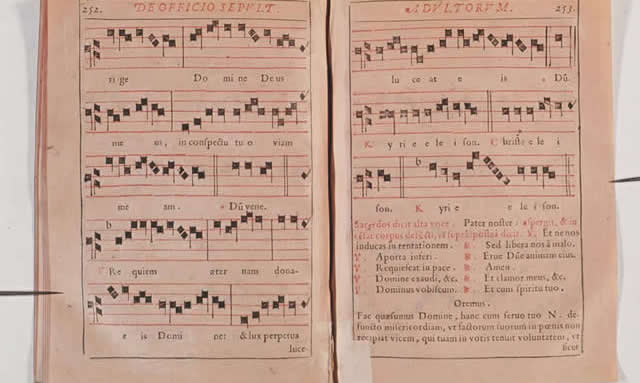 252. DE OFFICIO SEPVLT.
rige Do mi ne Deus
me us, in conspectu tu o viam
me am. Dũ vene.
Re quiem æter nam dona-
e is Domi ne: & lux perpetua
luce
ADVLTORVM. 253.
lu ce at e is Dũ.
K y ri e e le i son. C hriste e le i
son. K yri e e le i son.
Sacerdos dicit alta voce. Pater noster: aspergit, & in
Et ne nos
inducas in tentationem. Sed libera nos à malo.
V. A porta inferi. R. Erue Dñe animam eius.
V. Requiescat in pace. R. Amen.
V. Domine exaudi, &c. R. Et clamor meus, &c.
V. Dominus vobiscum. R. Et cum spiritu tuo.
Oremus.
Fac quæsumus Domine, hanc cum seruo tuo N. de-
functo misericordiam, vt factorum suorum in pœnis non
recipiat vicem, qui tuam in votis tenuit voluntatem, vt
sicut